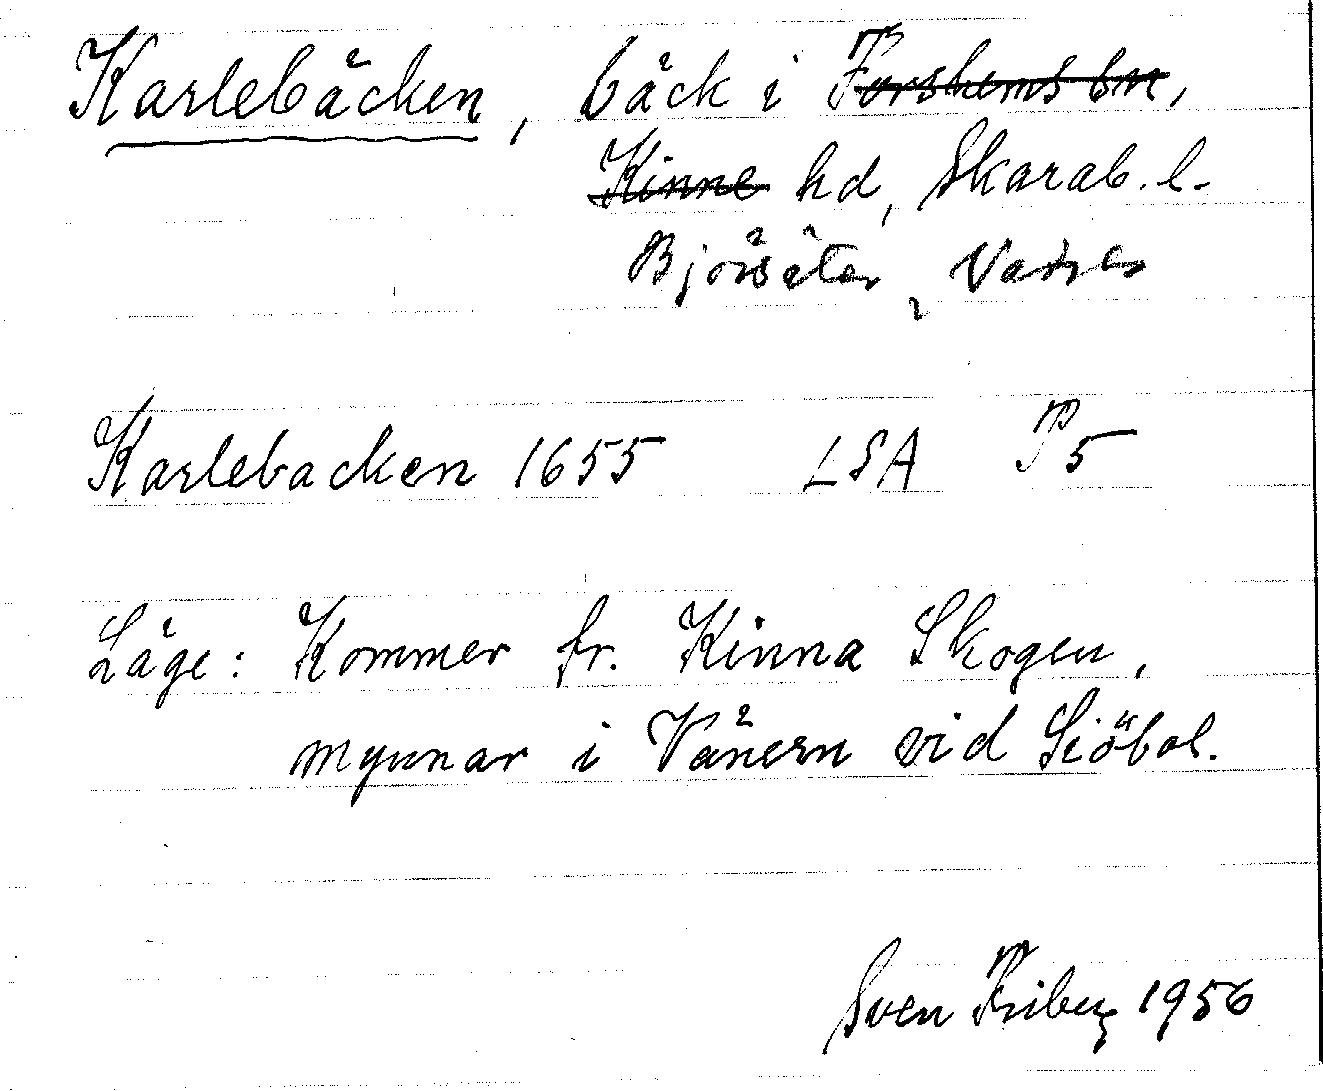 Karlebäcken, bäck i Forshems sn,
Kinne hd, Skarab. l.
Björsäter, Vadsbo
Karlebacken 1655 LSA P5
Läge: Kommer fr. Kinna Skogen,
mynnar i Vänern vid Siöbol.
Sven Friberg 1956